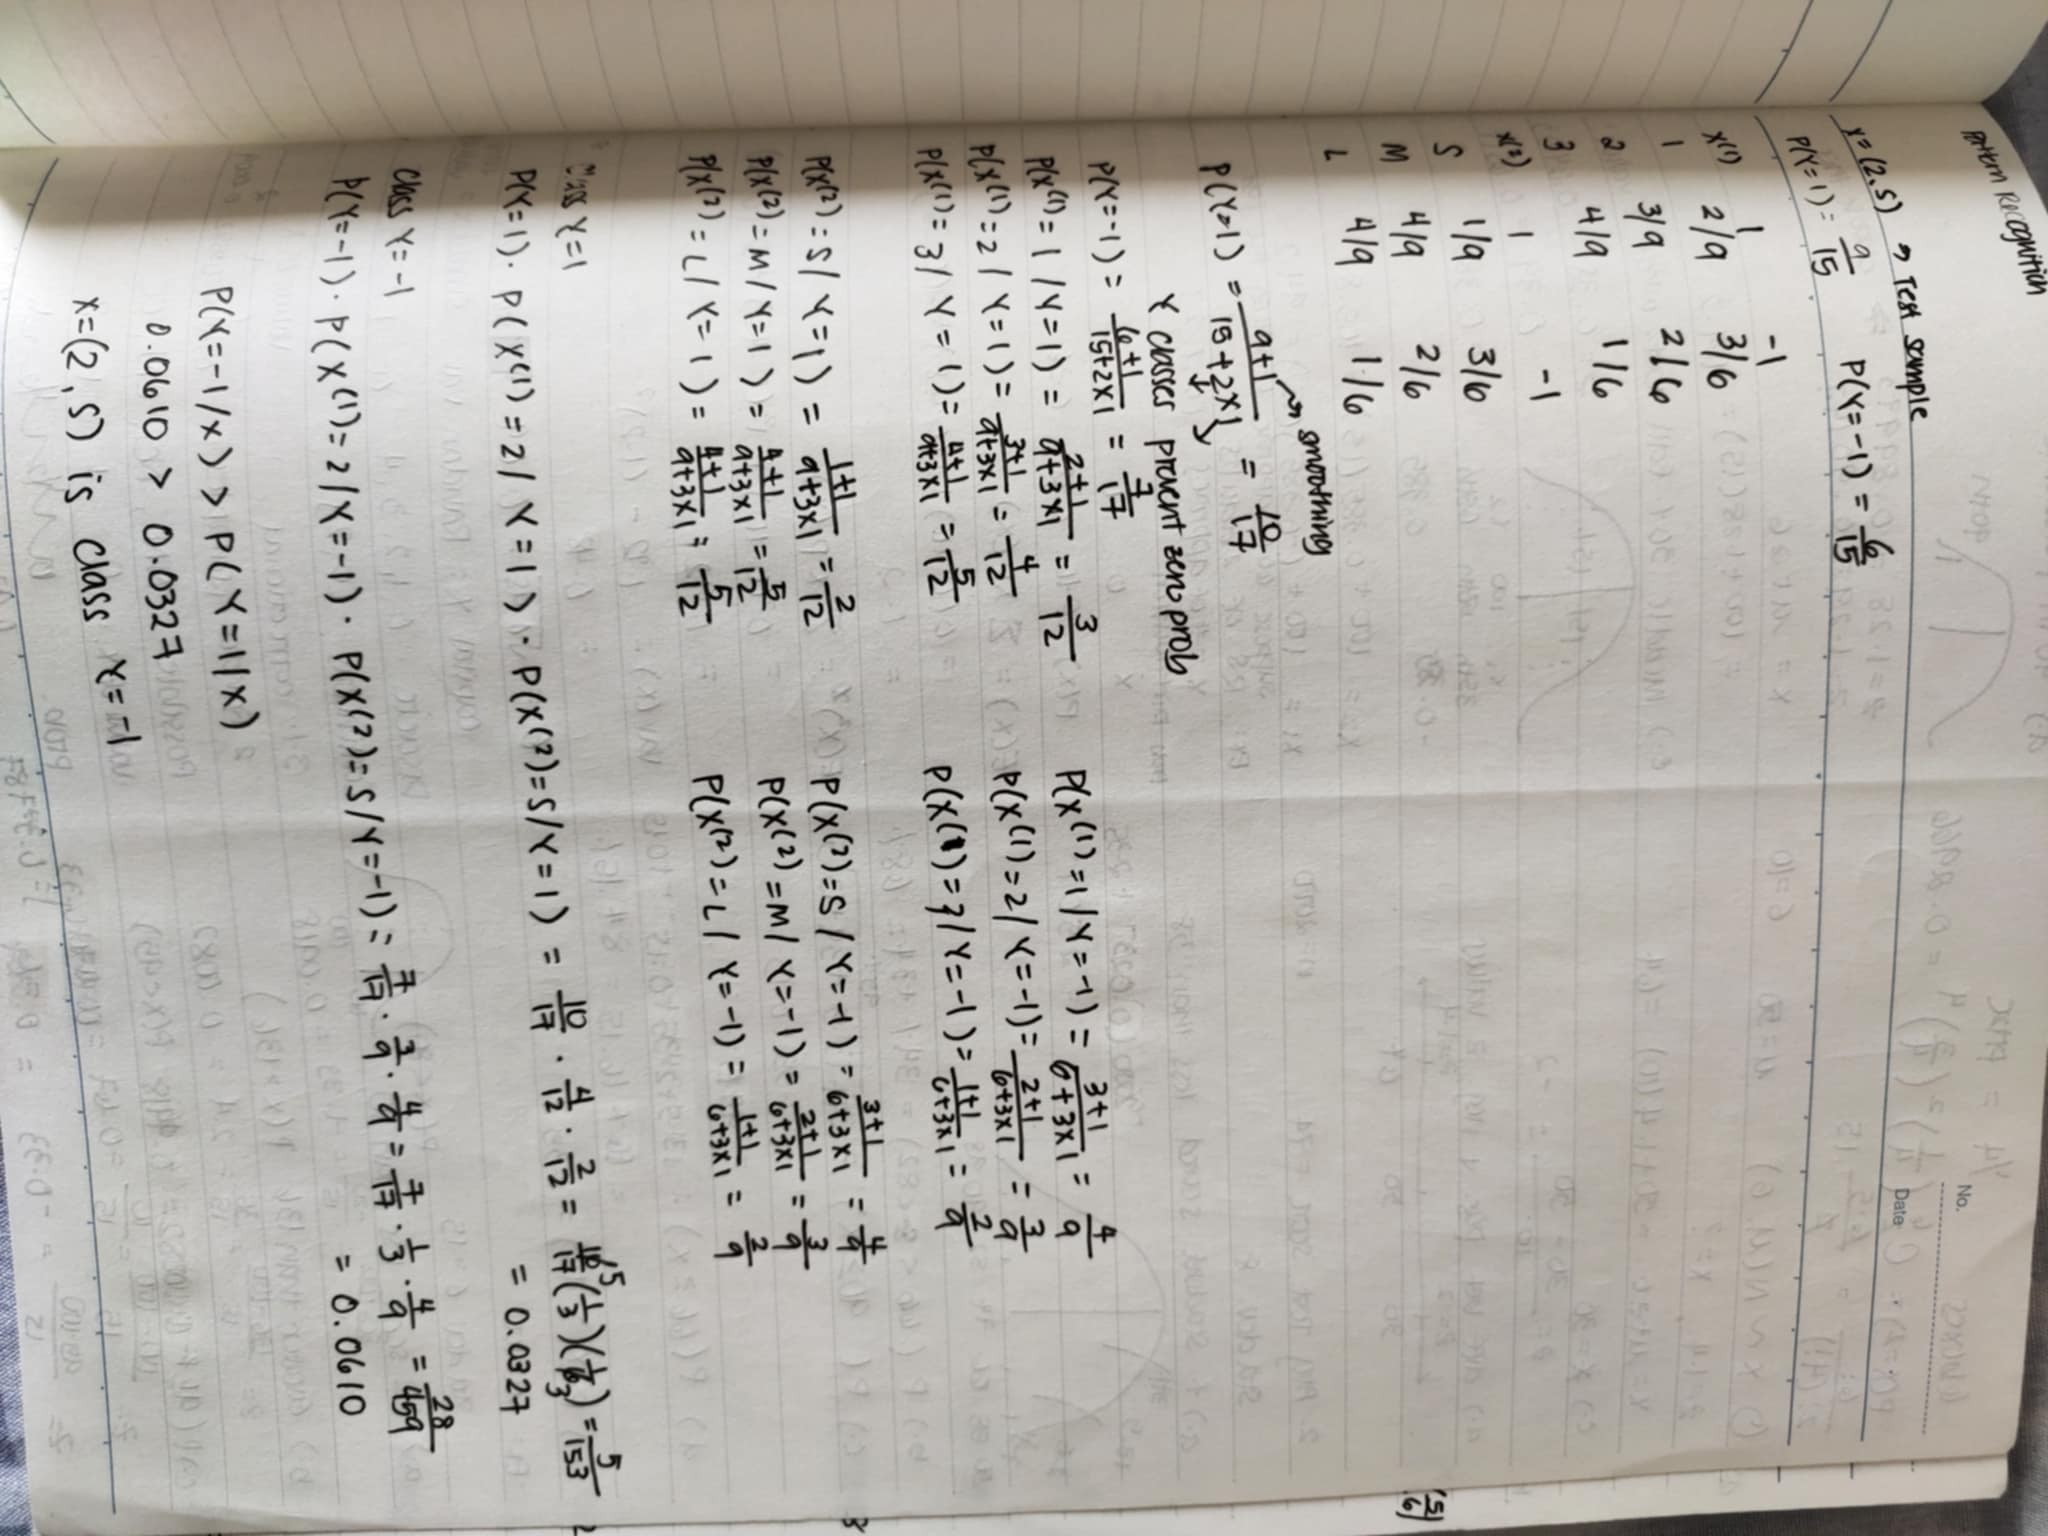 Pattern Recognition
No.
Date
x=(2,S) → Test sample
P(Y=1) = 9/15 P(Y=-1) = 6/15
x(1) 1 -1
1 2/9 3/6
2 3/9 2/6
3 4/9 1/6
x(2) 1 -1
S 1/9 3/6
M 4/9 2/6
L 4/9 1/6
→ smoothing
P(Y=1) = 9+1/15+2x1 = 10/17
Y classes prevent zero prob
P(Y=-1) = 6+1/15+2x1 = 7/17
P(X(1)=1/Y=1) = 2+1/9+3x1 = 3/12 P(X(1)=1/Y=-1) = 3+1/6+3x1 = 4/9
P(X(1)=2/Y=1) = 3+1/9+3x1 = 4/12 P(X(1)=2/Y=-1) = 2+1/6+3x1 = 3/9
P(X(1)=3/Y=1) = 4+1/9+3x1 = 5/12 P(X(1)=3/Y=-1) = 1+1/6+3x1 = 2/9
P(X(2)=S/Y=1) = 1+1/9+3x1 = 2/12 P(X(2)=S/Y=-1) = 3+1/6+3x1 = 4/9
P(X(2)=M/Y=1) = 4+1/9+3x1 = 5/12 P(X(2)=M/Y=-1) = 2+1/6+3x1 = 3/9
P(X(2)=L/Y=1) = 4+1/9+3x1 = 5/12 P(X(2)=L/Y=-1) = 1+1/6+3x1 = 2/9
Class Y=1
P(Y=1) · P(X(1)=2/Y=1) · P(X(2)=S/Y=1) = 10/17 · 4/12 · 2/12 = 10 5/17 (1/3)(1/6 3) = 5/153
= 0.0327
Class Y=-1
P(Y=-1) · P(X(1)=2/Y=-1) · P(X(2)=S/Y=-1) = 7/17 · 3/9 · 4/9 = 7/17 · 1/3 · 4/9 = 28/459
= 0.0610
P(Y=-1/x) > P(Y=1/x)
0.0610 > 0.0327
x=(2,S) is class Y=-1
(5/6)